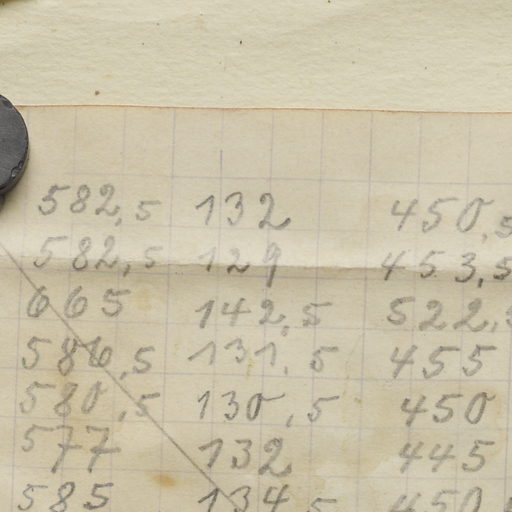 582,5 132 450,5
582,5 129 453,5
665 142,5 522,5
586,5 131,5 455
580,5 130,5 450
577 132 445
585 134,5 450,5